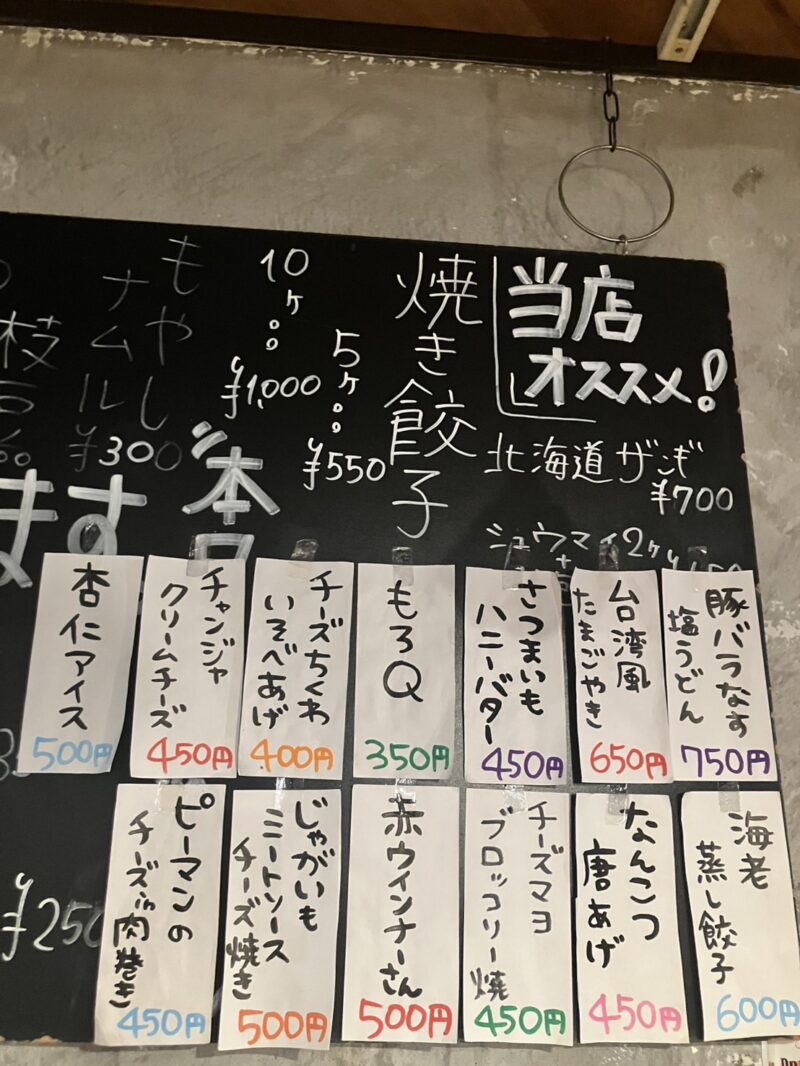 当店
オススメ!
北海道ザンギ
¥700
シュウマイ2ケ
焼き餃子
10ケ。。
¥1,000
5ケ。。
¥550
もやし
ナムル
¥300
本日
枝豆
ます。
豚バラなす
塩うどん
750円
台湾風
たまごやき
650円
さつまいも
ハニーバター
450円
もろQ
350円
チーズちくわ
いそべあげ
400円
チャンジャ
クリームチーズ
450円
杏仁アイス
500円
海老
蒸し餃子
600円
なんこつ
唐あげ
450円
チーズマヨ
ブロッコリー焼
450円
赤ウインナーさん
500円
じゃがいも
ミートソース
チーズ焼き
500円
ピーマンの
チーズin肉巻き
450円
¥250